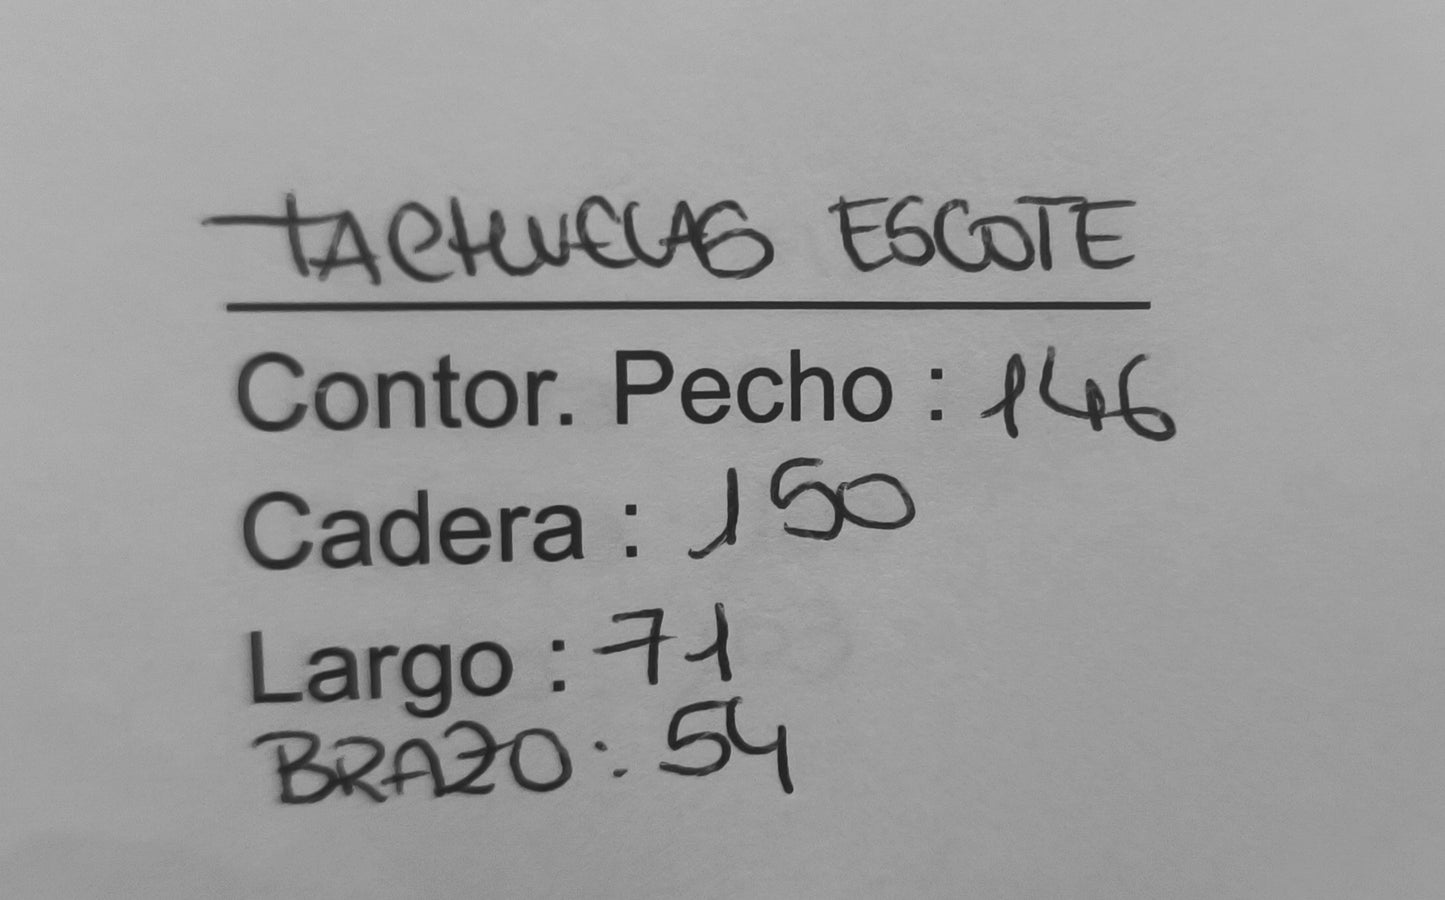 TACHUELAS ESCOTE
Contor. Pecho : 146
Cadera : 150
Largo : 71
BRAZO : 54